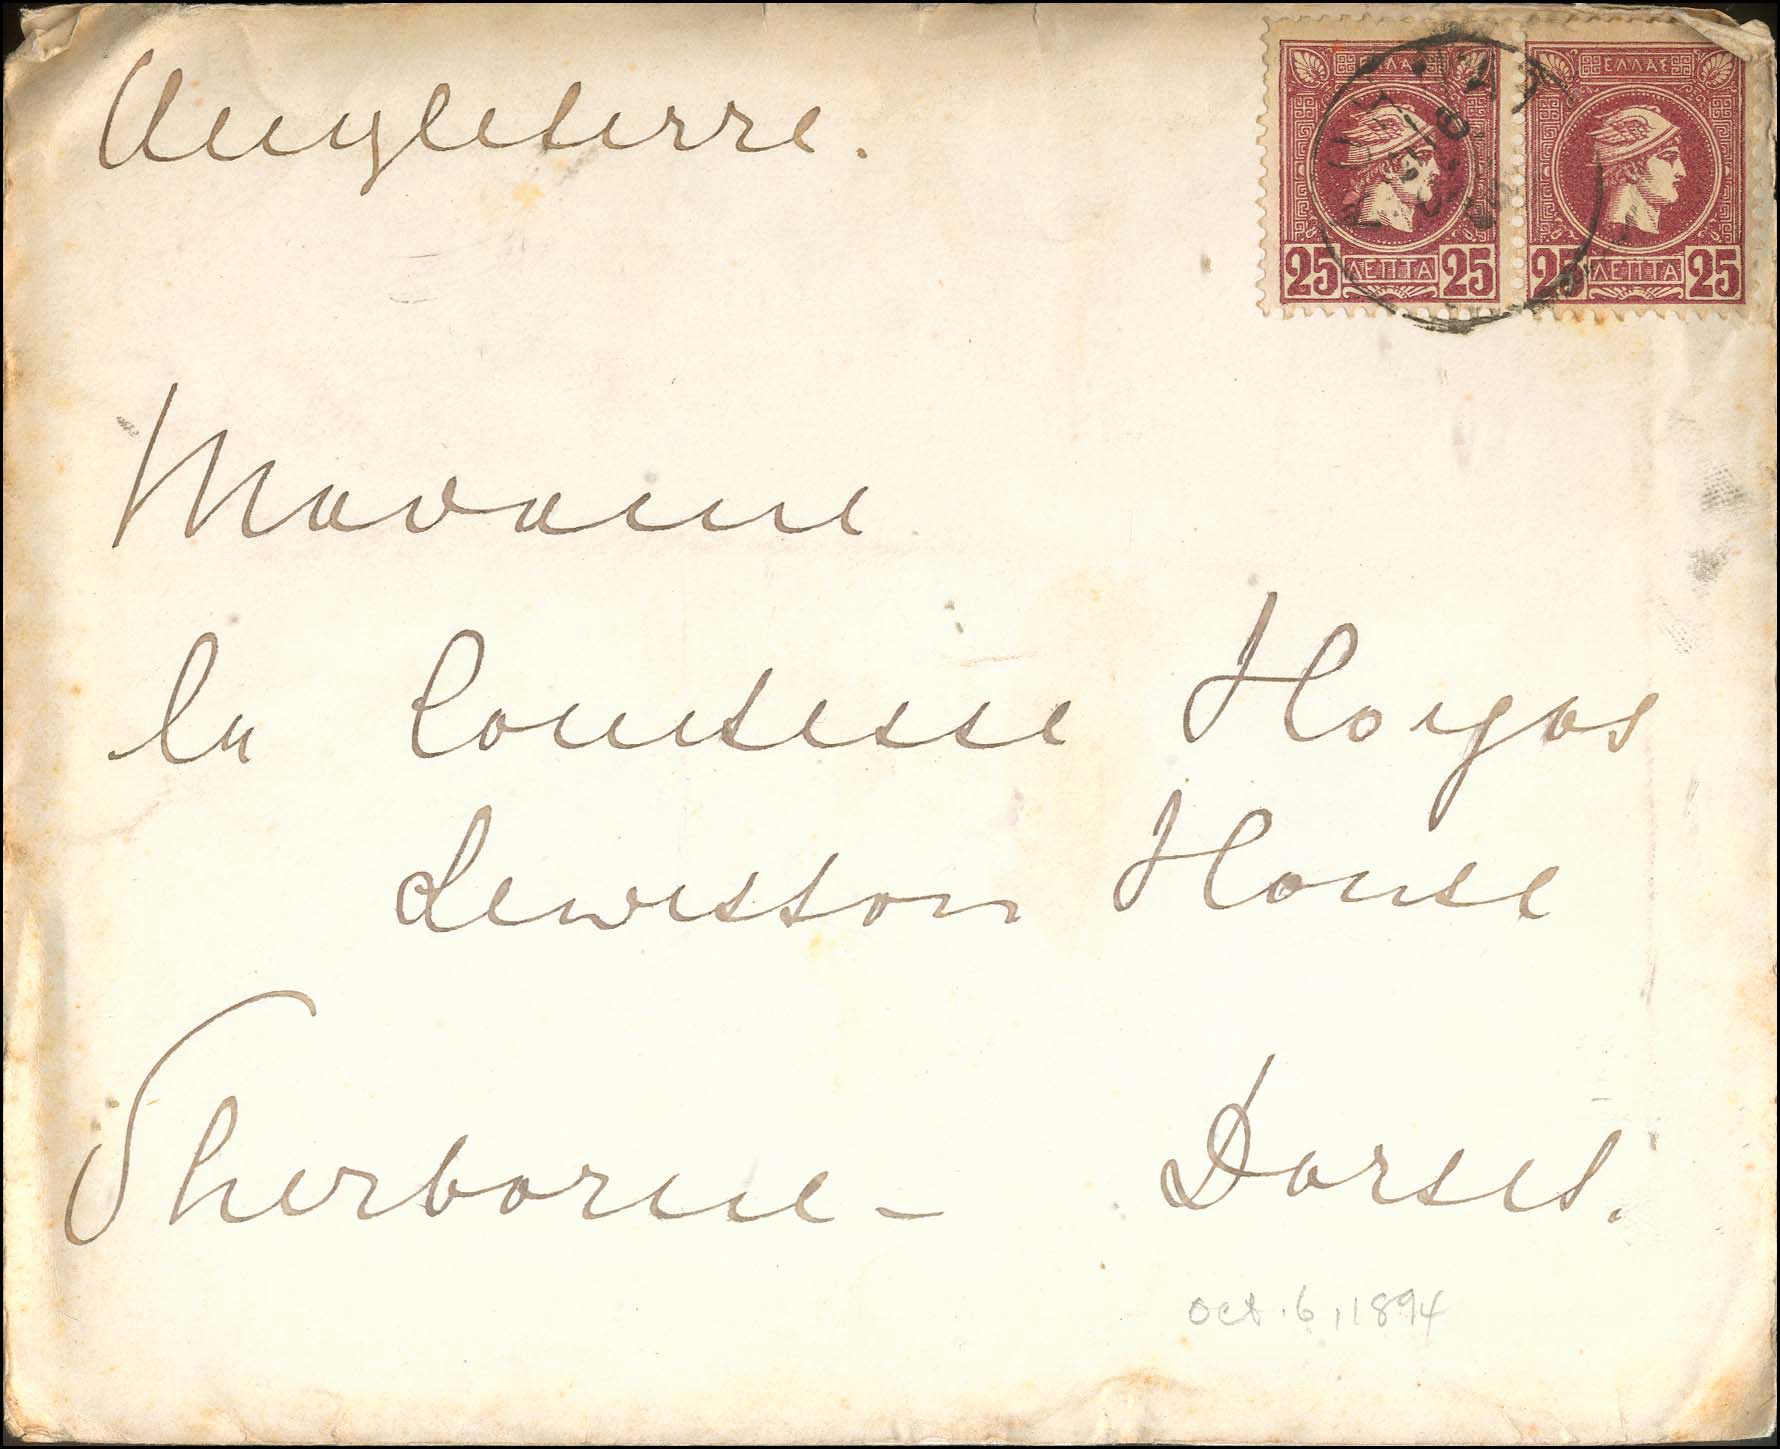 Angleterre.
ΕΛΛΑΣ ΕΛΛΑΣ
25 ΛΕΠΤΑ 25 25 ΛΕΠΤΑ 25
Madame
la Comtesse Hoyos
Leweston House
Sherborne - Dorset.
oct. 6, 1894